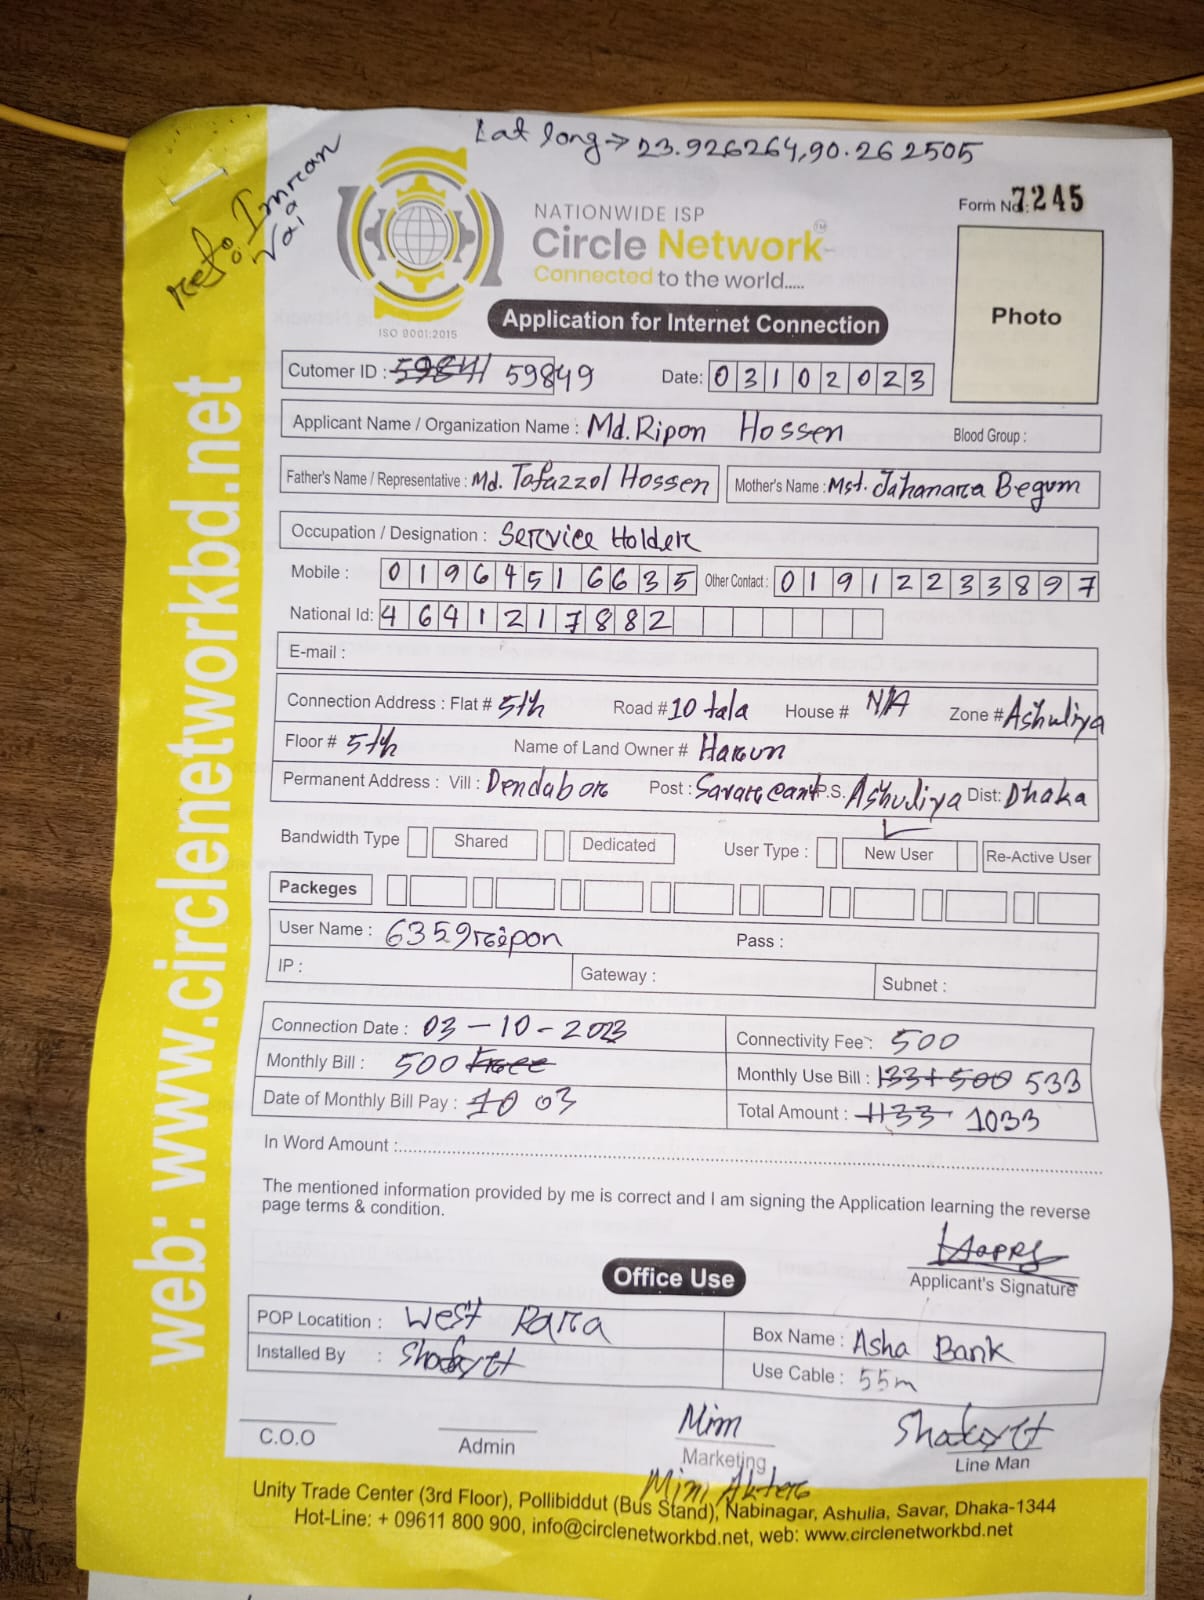 Lat long → 23.926264,90.262505
Ref: Imran Vai
NATIONWIDE ISP
Circle Network™
Connected to the world.....
ISO 9001:2015
Form No: 7245
Photo
Application for Internet Connection
Cutomer ID : 59841 59849 Date: 03102023
Applicant Name / Organization Name : Md. Ripon Hossen Blood Group :
Father's Name / Representative : Md. Tofazzol Hossen Mother's Name : Mst. Jahanara Begum
Occupation / Designation : Service Holder
Mobile : 01964516635 Other Contact : 01912233897
National Id: 4641217882
E-mail :
Connection Address : Flat # 5th Road # 10 tala House # N/A Zone # Ashuliya
Floor # 5th Name of Land Owner # Harun
Permanent Address : Vill : Dendabor Post : Savar cant P.S. Ashuliya Dist: Dhaka
Bandwidth Type Shared Dedicated User Type : New User Re-Active User
Packeges
User Name : 6359ripon Pass :
IP : Gateway : Subnet :
Connection Date : 03-10-2023 Connectivity Fee : 500
Monthly Bill : 500 Free Monthly Use Bill : 133+500 533
Date of Monthly Bill Pay : 10 03 Total Amount : 1133 1033
In Word Amount :
The mentioned information provided by me is correct and I am signing the Application learning the reverse
page terms & condition.
Applicant's Signature
Office Use
POP Locatition : West Para Box Name : Asha Bank
Installed By : Use Cable : 55m
C.O.O Admin Mim Marketing Line Man
Mim Akter
Unity Trade Center (3rd Floor), Pollibiddut (Bus Stand), Nabinagar, Ashulia, Savar, Dhaka-1344
Hot-Line: + 09611 800 900, info@circlenetworkbd.net, web: www.circlenetworkbd.net
web: www.circlenetworkbd.net